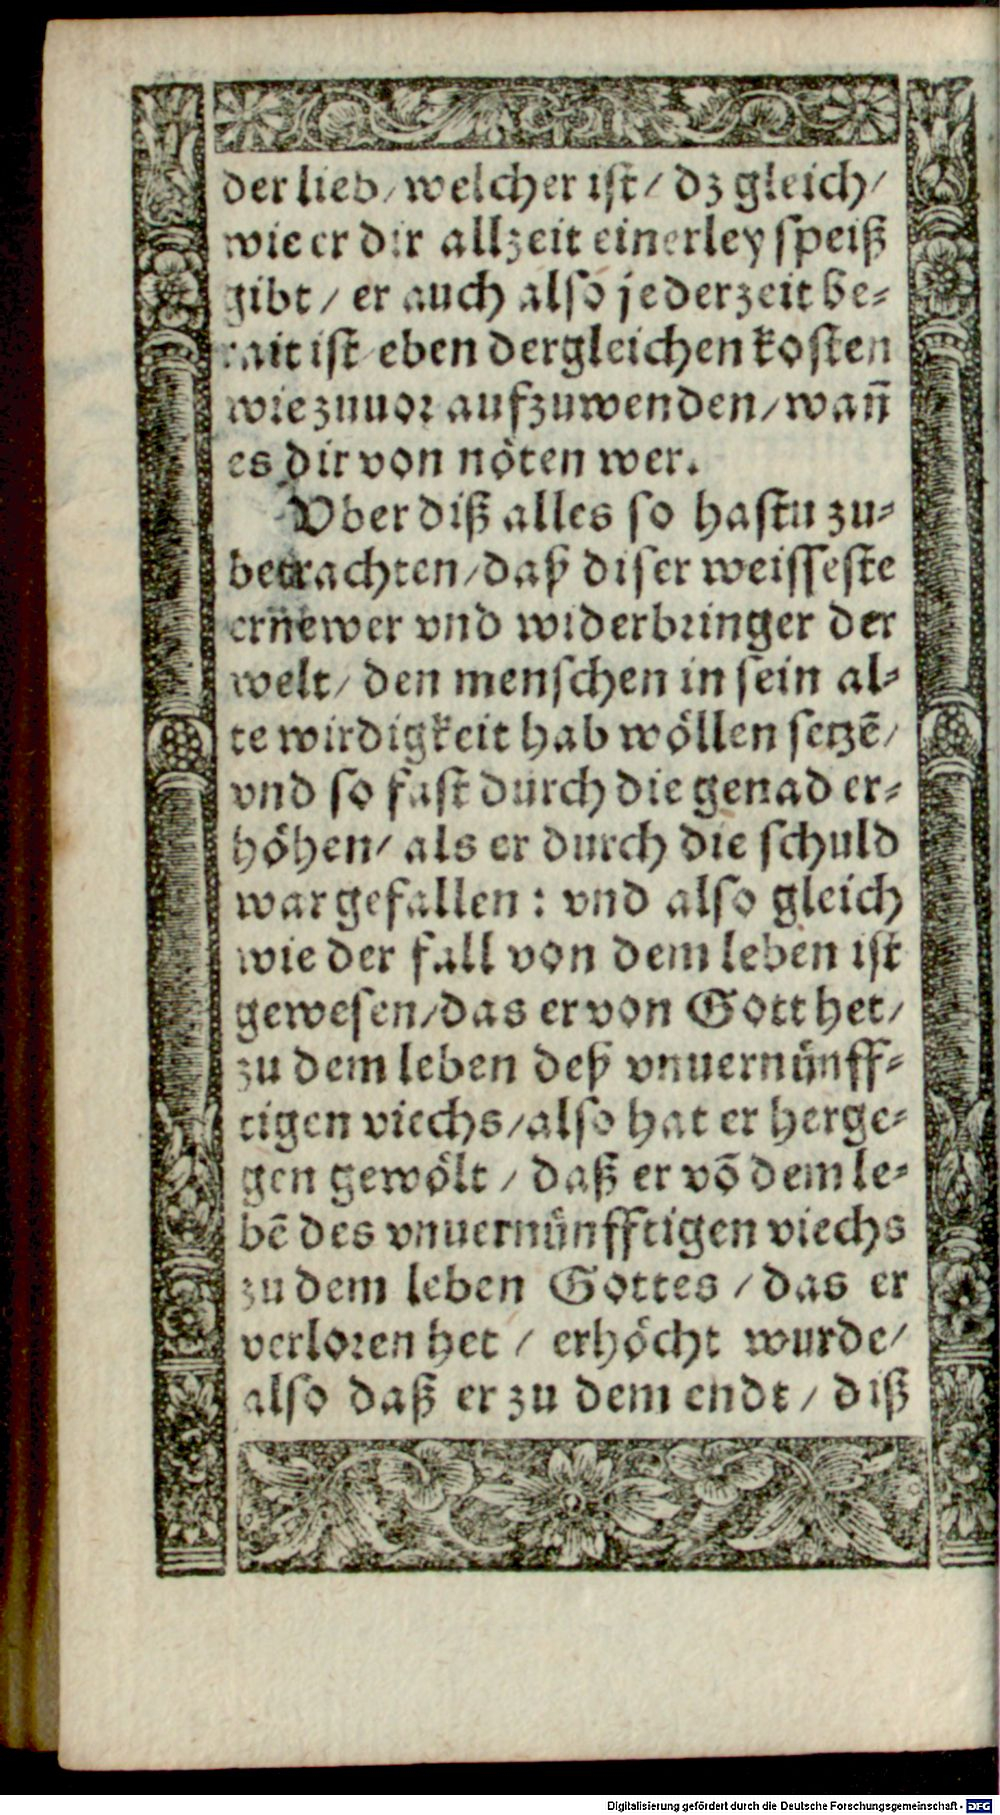 der lieb/ welcher ist/ dz gleich/
wie er dir allzeit einerley speiß
gibt/ er auch also jederzeit be-
rait ist eben dergleichen kosten
wie zuuor aufzuwenden/ wañ
es dir von nöten wer.
Vber diß alles so hastu zu-
betrachten/ daß diser weisseste
erñewer vnd widerbringer der
welt/ den menschen in sein al-
te wirdigkeit hab wöllen setzẽ/
vnd so fast durch die genad er-
höhen/ als er durch die schuld
war gefallen: vnd also gleich
wie der fall von dem leben ist
gewesen/ das er von Gott het/
zu dem leben deß vnuernünff-
tigen viechs/ also hat er herge-
gen gewölt/ daß er võ dem le-
bẽ des vnuernünfftigen viechs
zu dem leben Gottes/ das er
verloren het/ erhöcht wurde/
also daß er zu dem endt/ diß
Digitalisierung gefördert durch die Deutsche Forschungsgemeinschaft - DFG